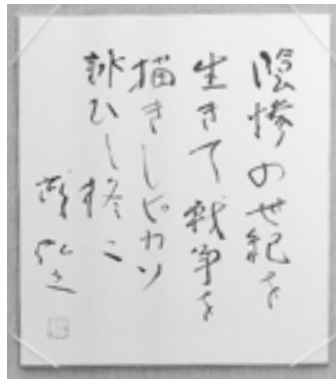 陰惨の世紀を
生きて戦争を
描きしピカソ
詠ひし柊二